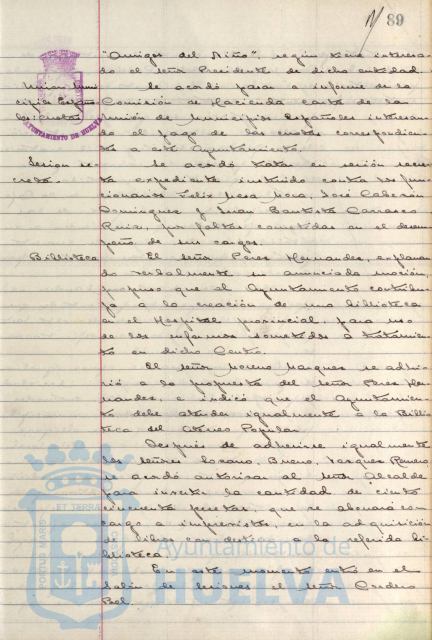 89
"Amigos del Niño", según tiene interesa-
do el señor Presidente de dicha entidad.
Unión Muni- Se acordó pasar a informe de la
cipios Españo- Comisión de Hacienda carta de la
les: cuotas Unión de Municipios Españoles interesan-
do el pago de las cuotas correspondien-
tes a este Ayuntamiento.
AYUNTAMIENTO DE HUELVA
Sesión se- Se acordó tratar en sesión secre-
creta. ta expediente instruido contra los fun-
cionarios Felix Mesa Mora, José Cabezón
Dominguez y Juan Bautista Carrasco
Ruiz, por faltas cometidas en el desem-
peño de sus cargos.
Biblioteca El señor Perez Hernandez, explanan-
do verbalmente su anunciada moción,
propuso que el Ayuntamiento contribu-
ya a la creación de una biblioteca
en el Hospital provincial, para uso
de los enfermos sometidos a tratamien-
to en dicho Centro.
El señor Moreno Marquez se adhi-
rió a la propuesta del señor Perez Her-
nandez, e indicó que el Ayuntamien-
to debe atender igualmente a la Biblio-
teca del Ateneo Popular.
Después de adherirse igualmente
los señores Lozano, Bueno, Vazquez Romero,
se acordó autorizar al señor Alcalde
para invertir la cantidad de ciento
cincuenta pesetas, que se abonará con
cargo a imprevistos, en la adquisición
de libros con destino a la referida bi-
blioteca.
En este momento entró en el
Salón de Sesiones el señor Cordero
Bel.
PORTUS MARIS ET TERRAE CUSTODIA
Ayuntamiento de
HUELVA